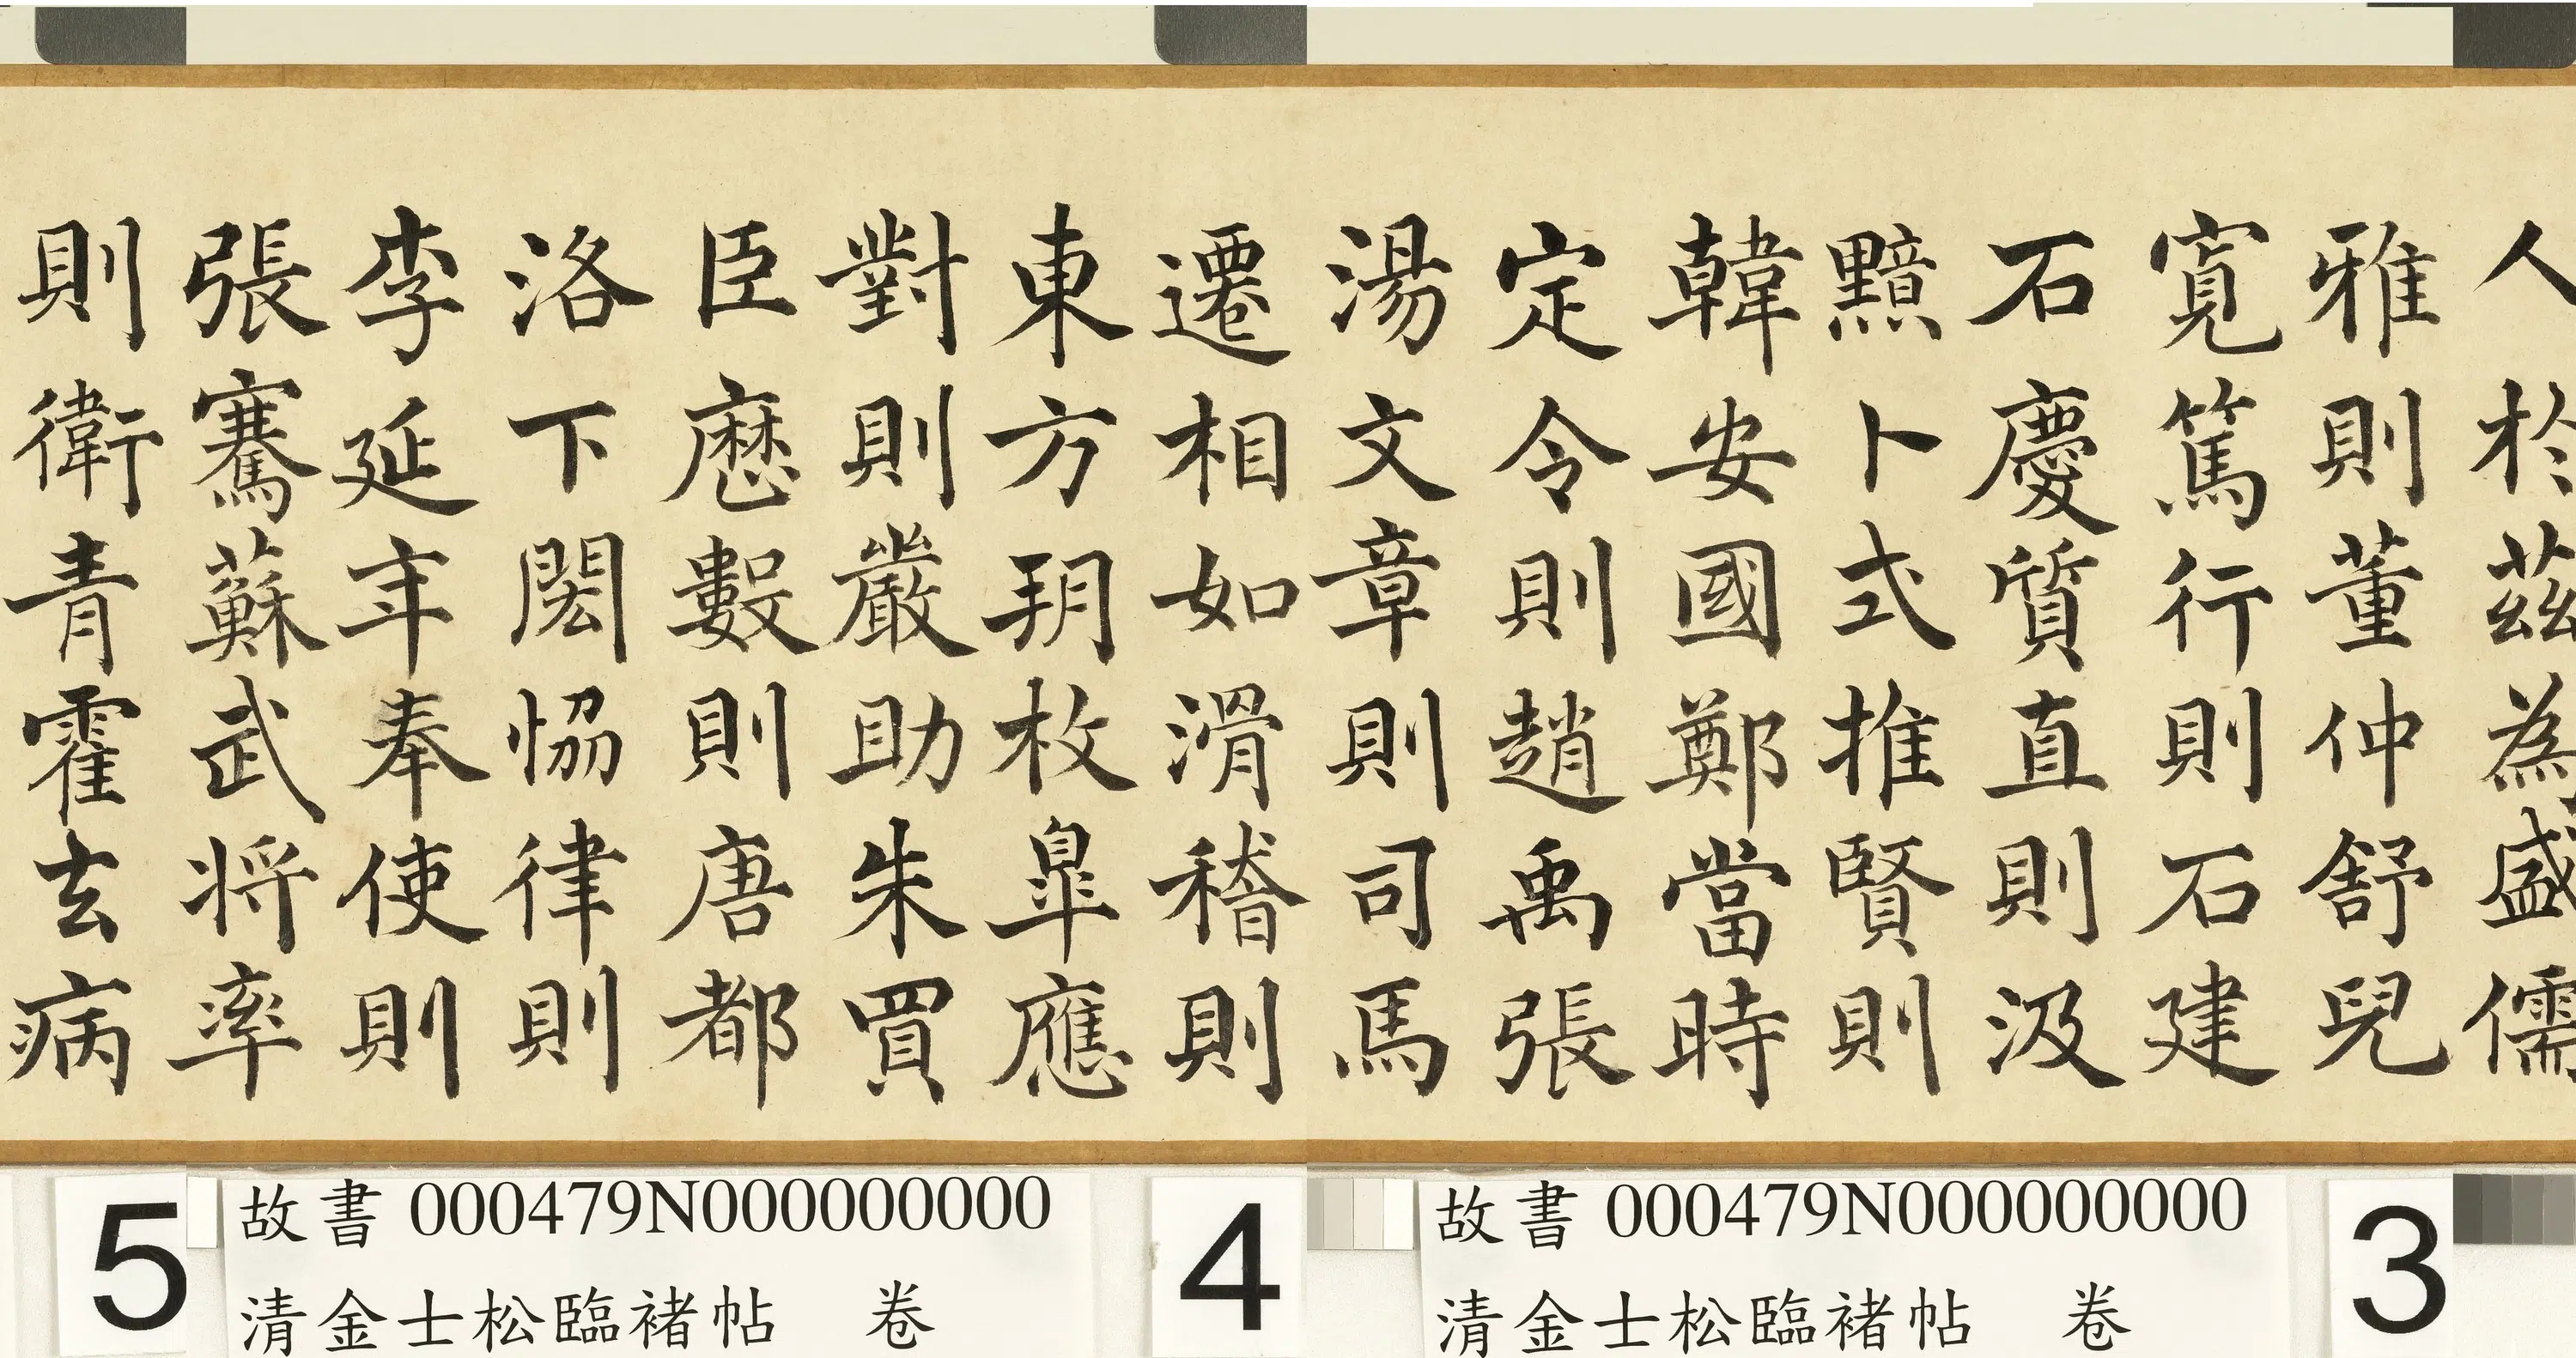 人於茲為盛儒
雅則董仲舒兒
寬篤行則石建
石慶質直則汲
黯卜式推賢則
韓安國鄭當時
定令則趙禹張
湯文章則司馬
遷相如滑稽則
東方朔枚皐應
對則嚴助朱買
臣厯數則唐都
洛下閎恊律則
李延年奉使則
張騫蘇武将率
則衛青霍去病
3
故書 000479N000000000
清金士松臨褚帖 卷
4
故書 000479N000000000
清金士松臨褚帖 卷
5